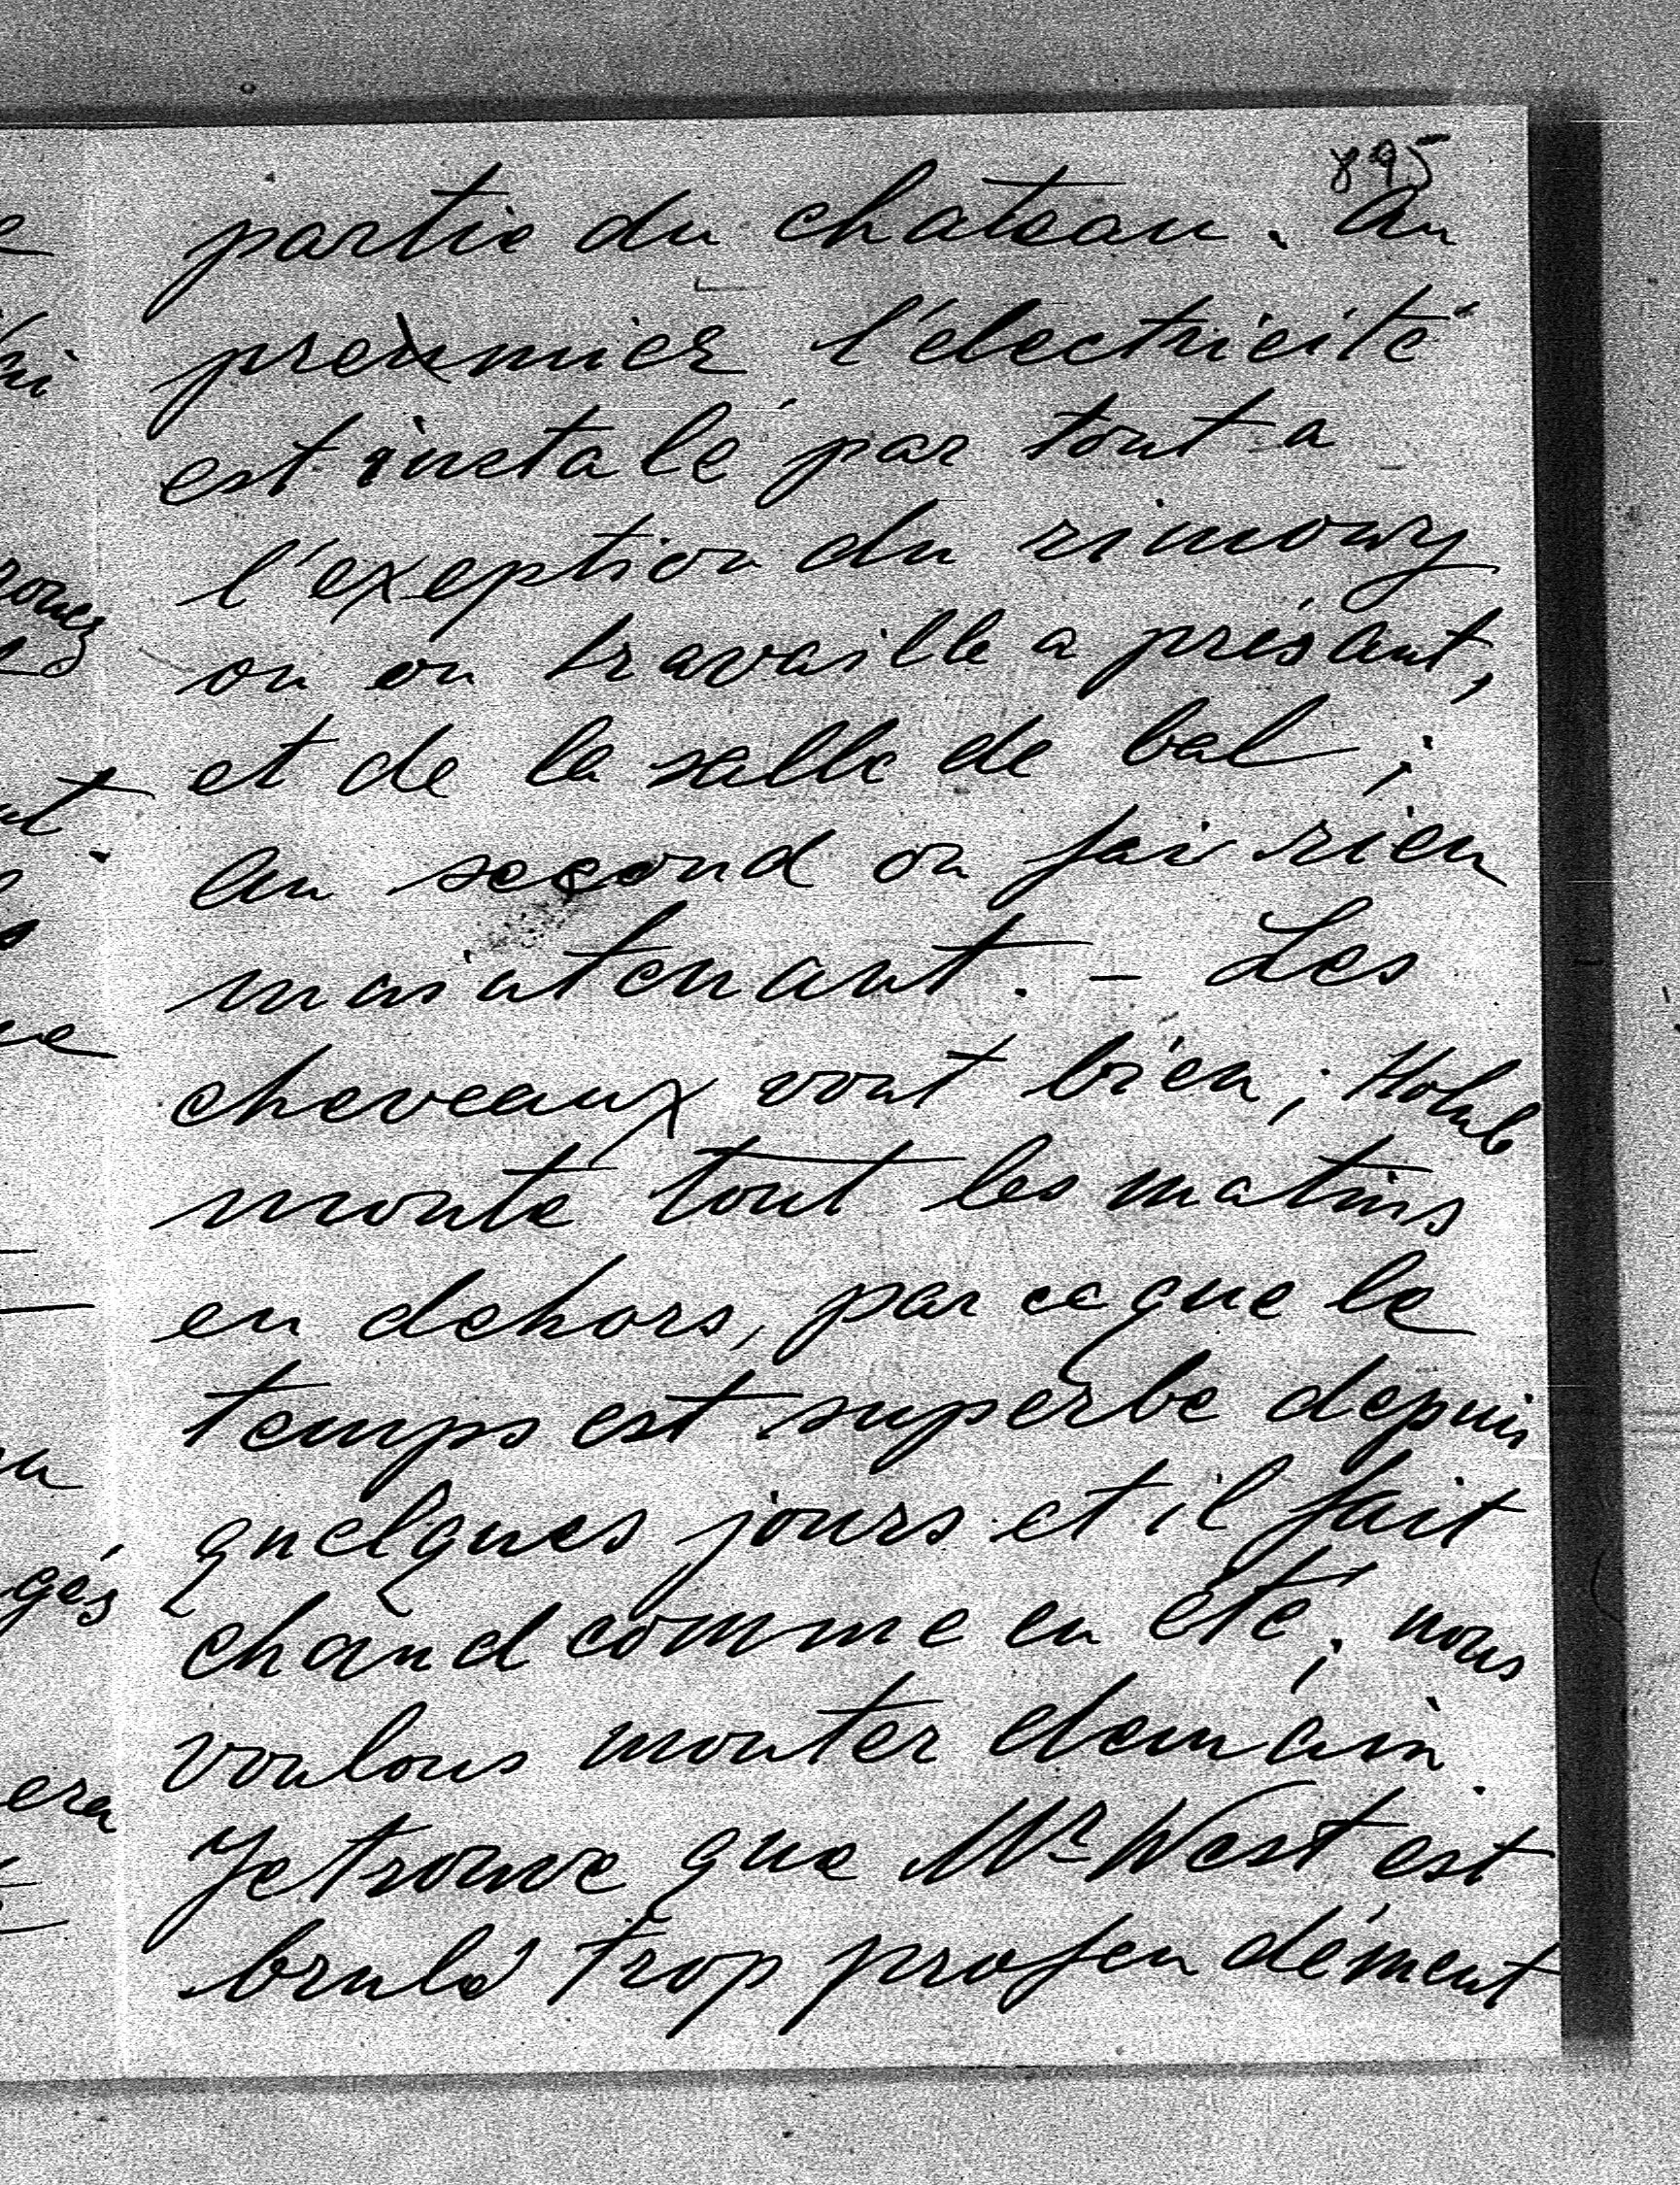 895
partie du chateau. Au
premier l'électricité
est instalé par tout a
l'exeption du zimowy
on en travaille a présant,
et de la salle de bal;
Au second on fai rien
maintenant. – Les
cheveaux vont bien; Holub
monte tout les matins
en dehors, par ce que le
temps est superbe depuis
quelques jours et il fait
chaud comme en été; nous
voulons monter demain.
Je trouve que Mr West est
brulé trop profendément